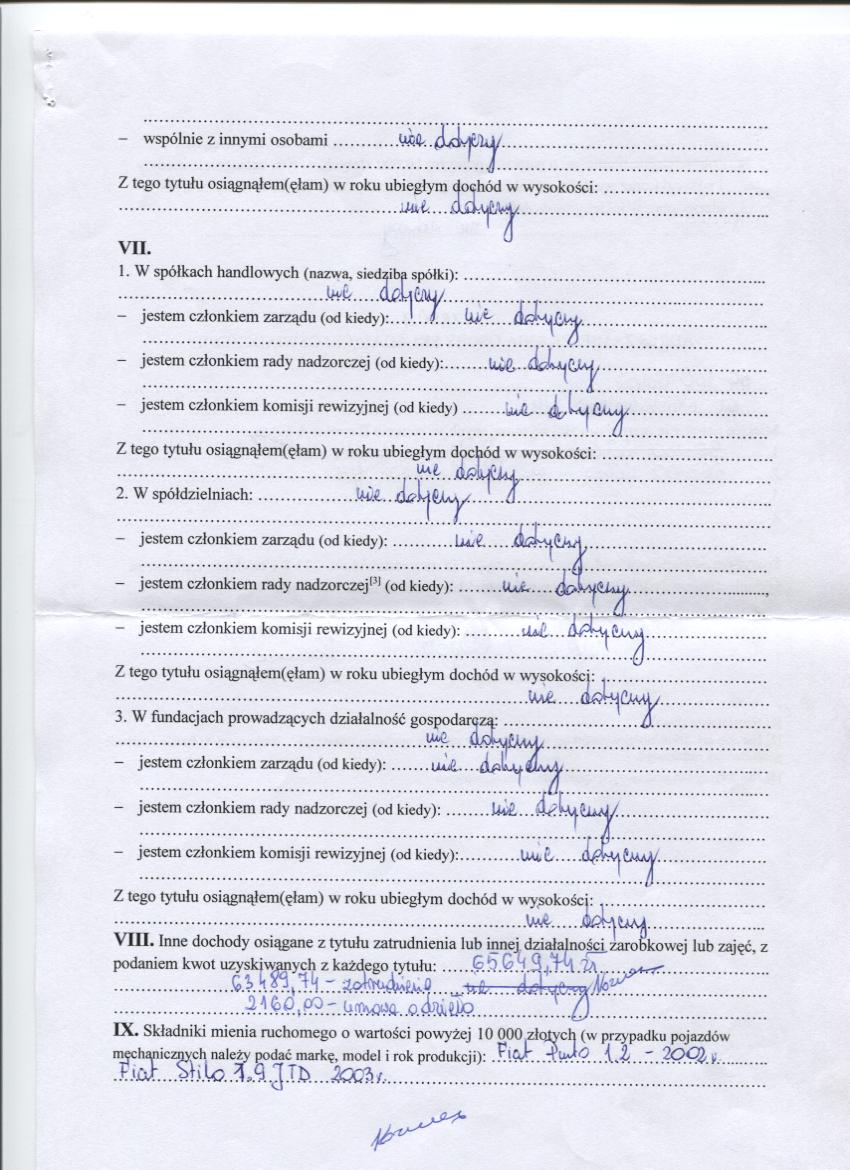 – wspólnie z innymi osobami nie dotyczy
Z tego tytułu osiągnąłem(ęłam) w roku ubiegłym dochód w wysokości:
nie dotyczy
VII.
1. W spółkach handlowych (nazwa, siedziba spółki):
nie dotyczy
– jestem członkiem zarządu (od kiedy): nie dotyczy
– jestem członkiem rady nadzorczej (od kiedy): nie dotyczy
– jestem członkiem komisji rewizyjnej (od kiedy) nie dotyczy
Z tego tytułu osiągnąłem(ęłam) w roku ubiegłym dochód w wysokości:
nie dotyczy
2. W spółdzielniach: nie dotyczy
– jestem członkiem zarządu (od kiedy): nie dotyczy
– jestem członkiem rady nadzorczej[3] (od kiedy): nie dotyczy,
– jestem członkiem komisji rewizyjnej (od kiedy): nie dotyczy
Z tego tytułu osiągnąłem(ęłam) w roku ubiegłym dochód w wysokości:
nie dotyczy
3. W fundacjach prowadzących działalność gospodarczą:
nie dotyczy
– jestem członkiem zarządu (od kiedy): nie dotyczy
– jestem członkiem rady nadzorczej (od kiedy): nie dotyczy
– jestem członkiem komisji rewizyjnej (od kiedy): nie dotyczy
Z tego tytułu osiągnąłem(ęłam) w roku ubiegłym dochód w wysokości:
nie dotyczy
VIII. Inne dochody osiągane z tytułu zatrudnienia lub innej działalności zarobkowej lub zajęć, z
podaniem kwot uzyskiwanych z każdego tytułu: 65649,74 zł
63489,74 – zatrudnienie nie dotyczy
2160,00 – umowa o dzieło
IX. Składniki mienia ruchomego o wartości powyżej 10 000 złotych (w przypadku pojazdów
mechanicznych należy podać markę, model i rok produkcji): Fiat Punto 1.2 – 2002 r.
Fiat Stilo 1.9 JTD 2003 r.